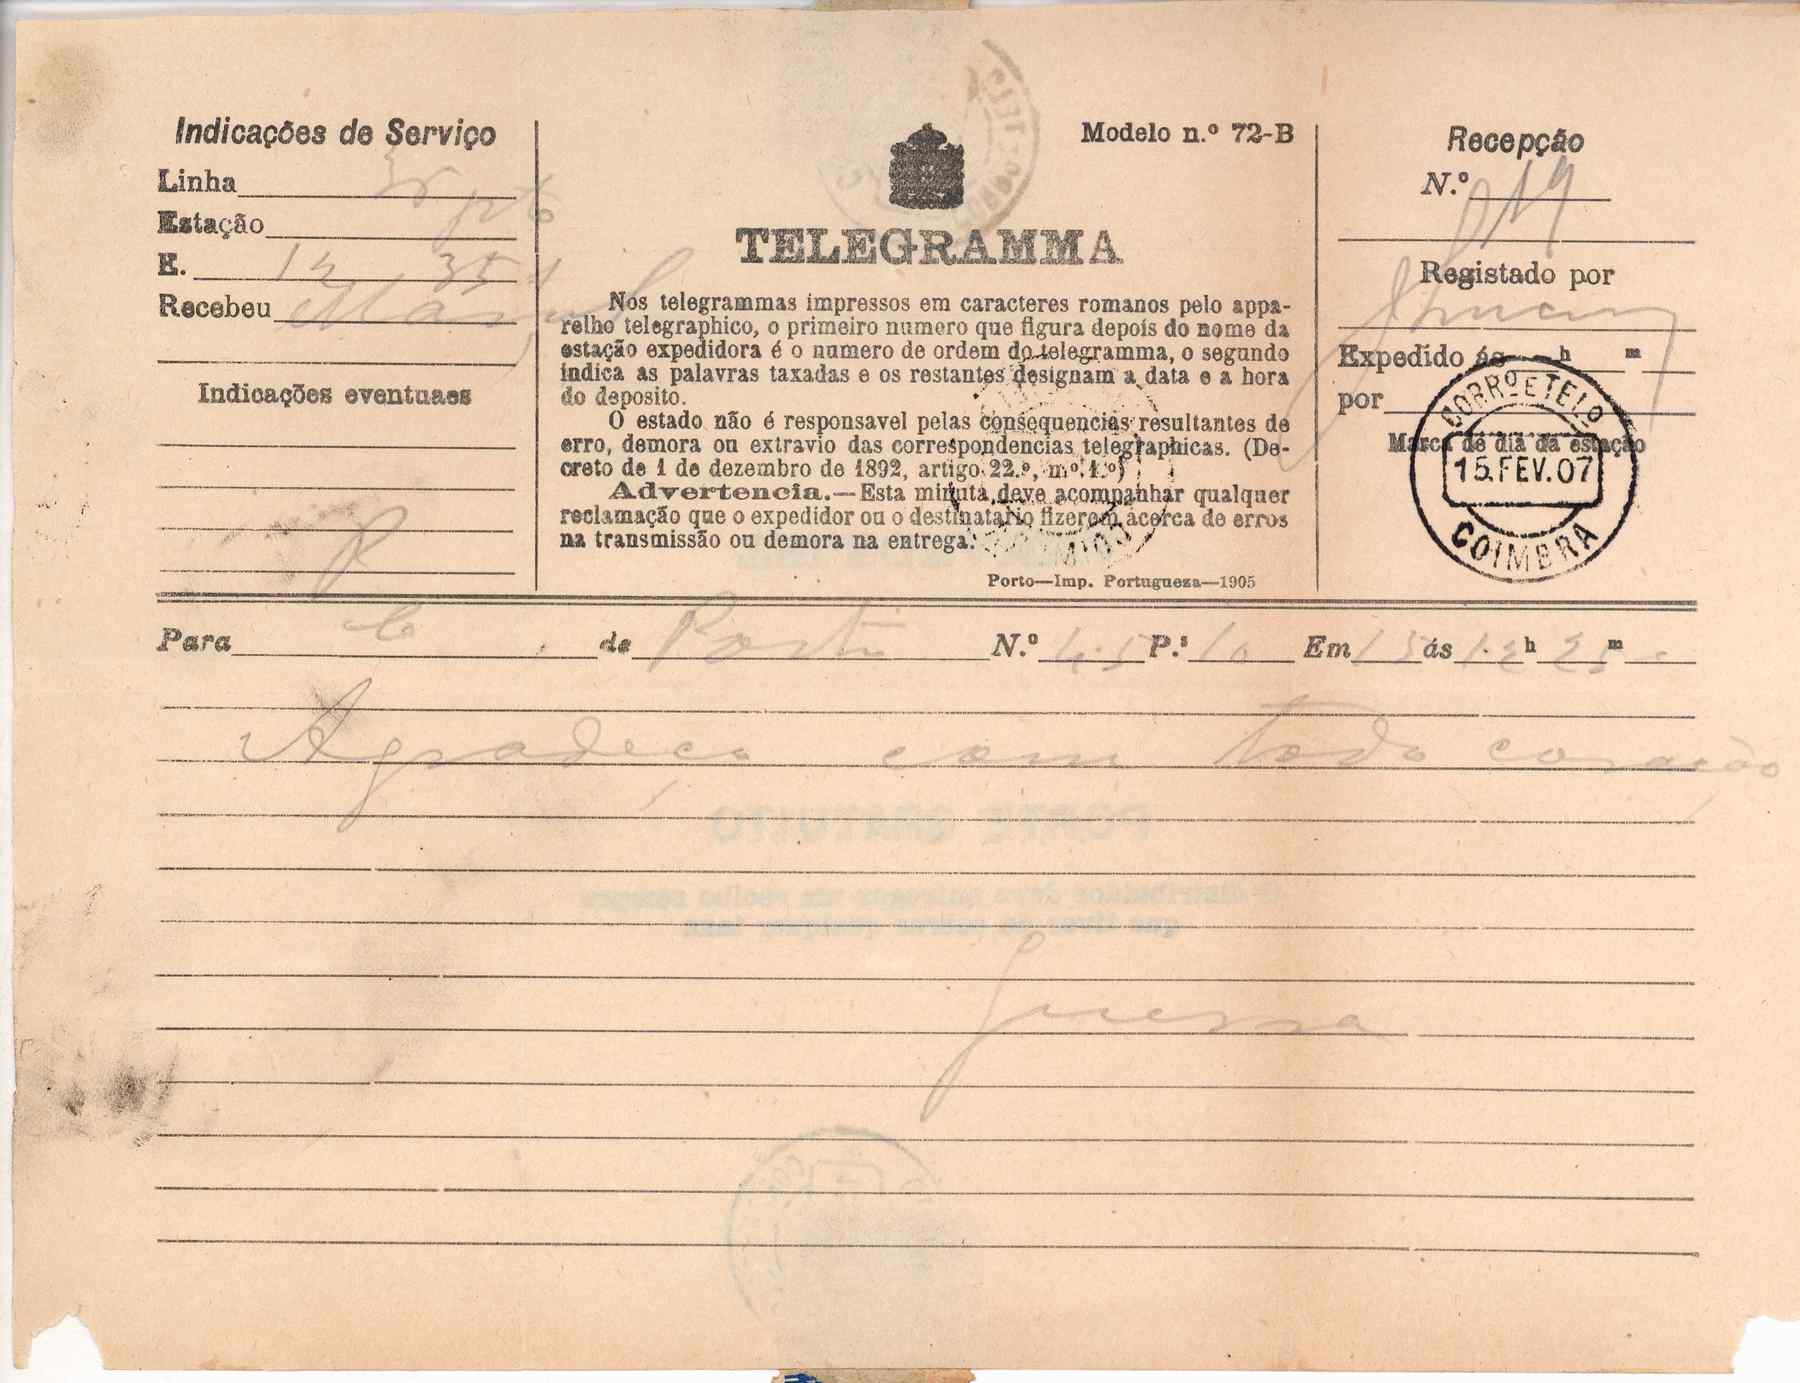 Indicações de Serviço
Linha
Estação
H. 12 35
Recebeu
Indicações eventuaes
Modelo n.º 72-B
TELEGRAMMA
Nos telegrammas impressos em caracteres romanos pelo appa-
relho telegraphico, o primeiro numero que figura depois do nome da
estação expedidora é o numero de ordem do telegramma, o segundo
indica as palavras taxadas e os restantes designam a data e a hora
do deposito.
O estado não é responsavel pelas consequencias resultantes de
erro, demora ou extravio das correspondencias telegraphicas. (De-
creto de 1 de dezembro de 1892, artigo 22.º, n.º 1.º)
Advertencia.—Esta minuta deve acompanhar qualquer
reclamação que o expedidor ou o destinatario fizerem acerca de erros
na transmissão ou demora na entrega.
Porto—Imp. Portugueza—1905
Recepção
N.º 219
Registado por
Expedido ás h m
por
Marca de dia da estação
CORRº E TELº
15.FEV.07
COIMBRA
Para C de Porto N.º 45 P.s 10 Em 15 ás 12 h 25 m
Agradeço com todo coração
Guerra
PORTE GRATUITO
O distribuidor deve entregar um recibo sempre
que tiver de cobrar qualquer taxa